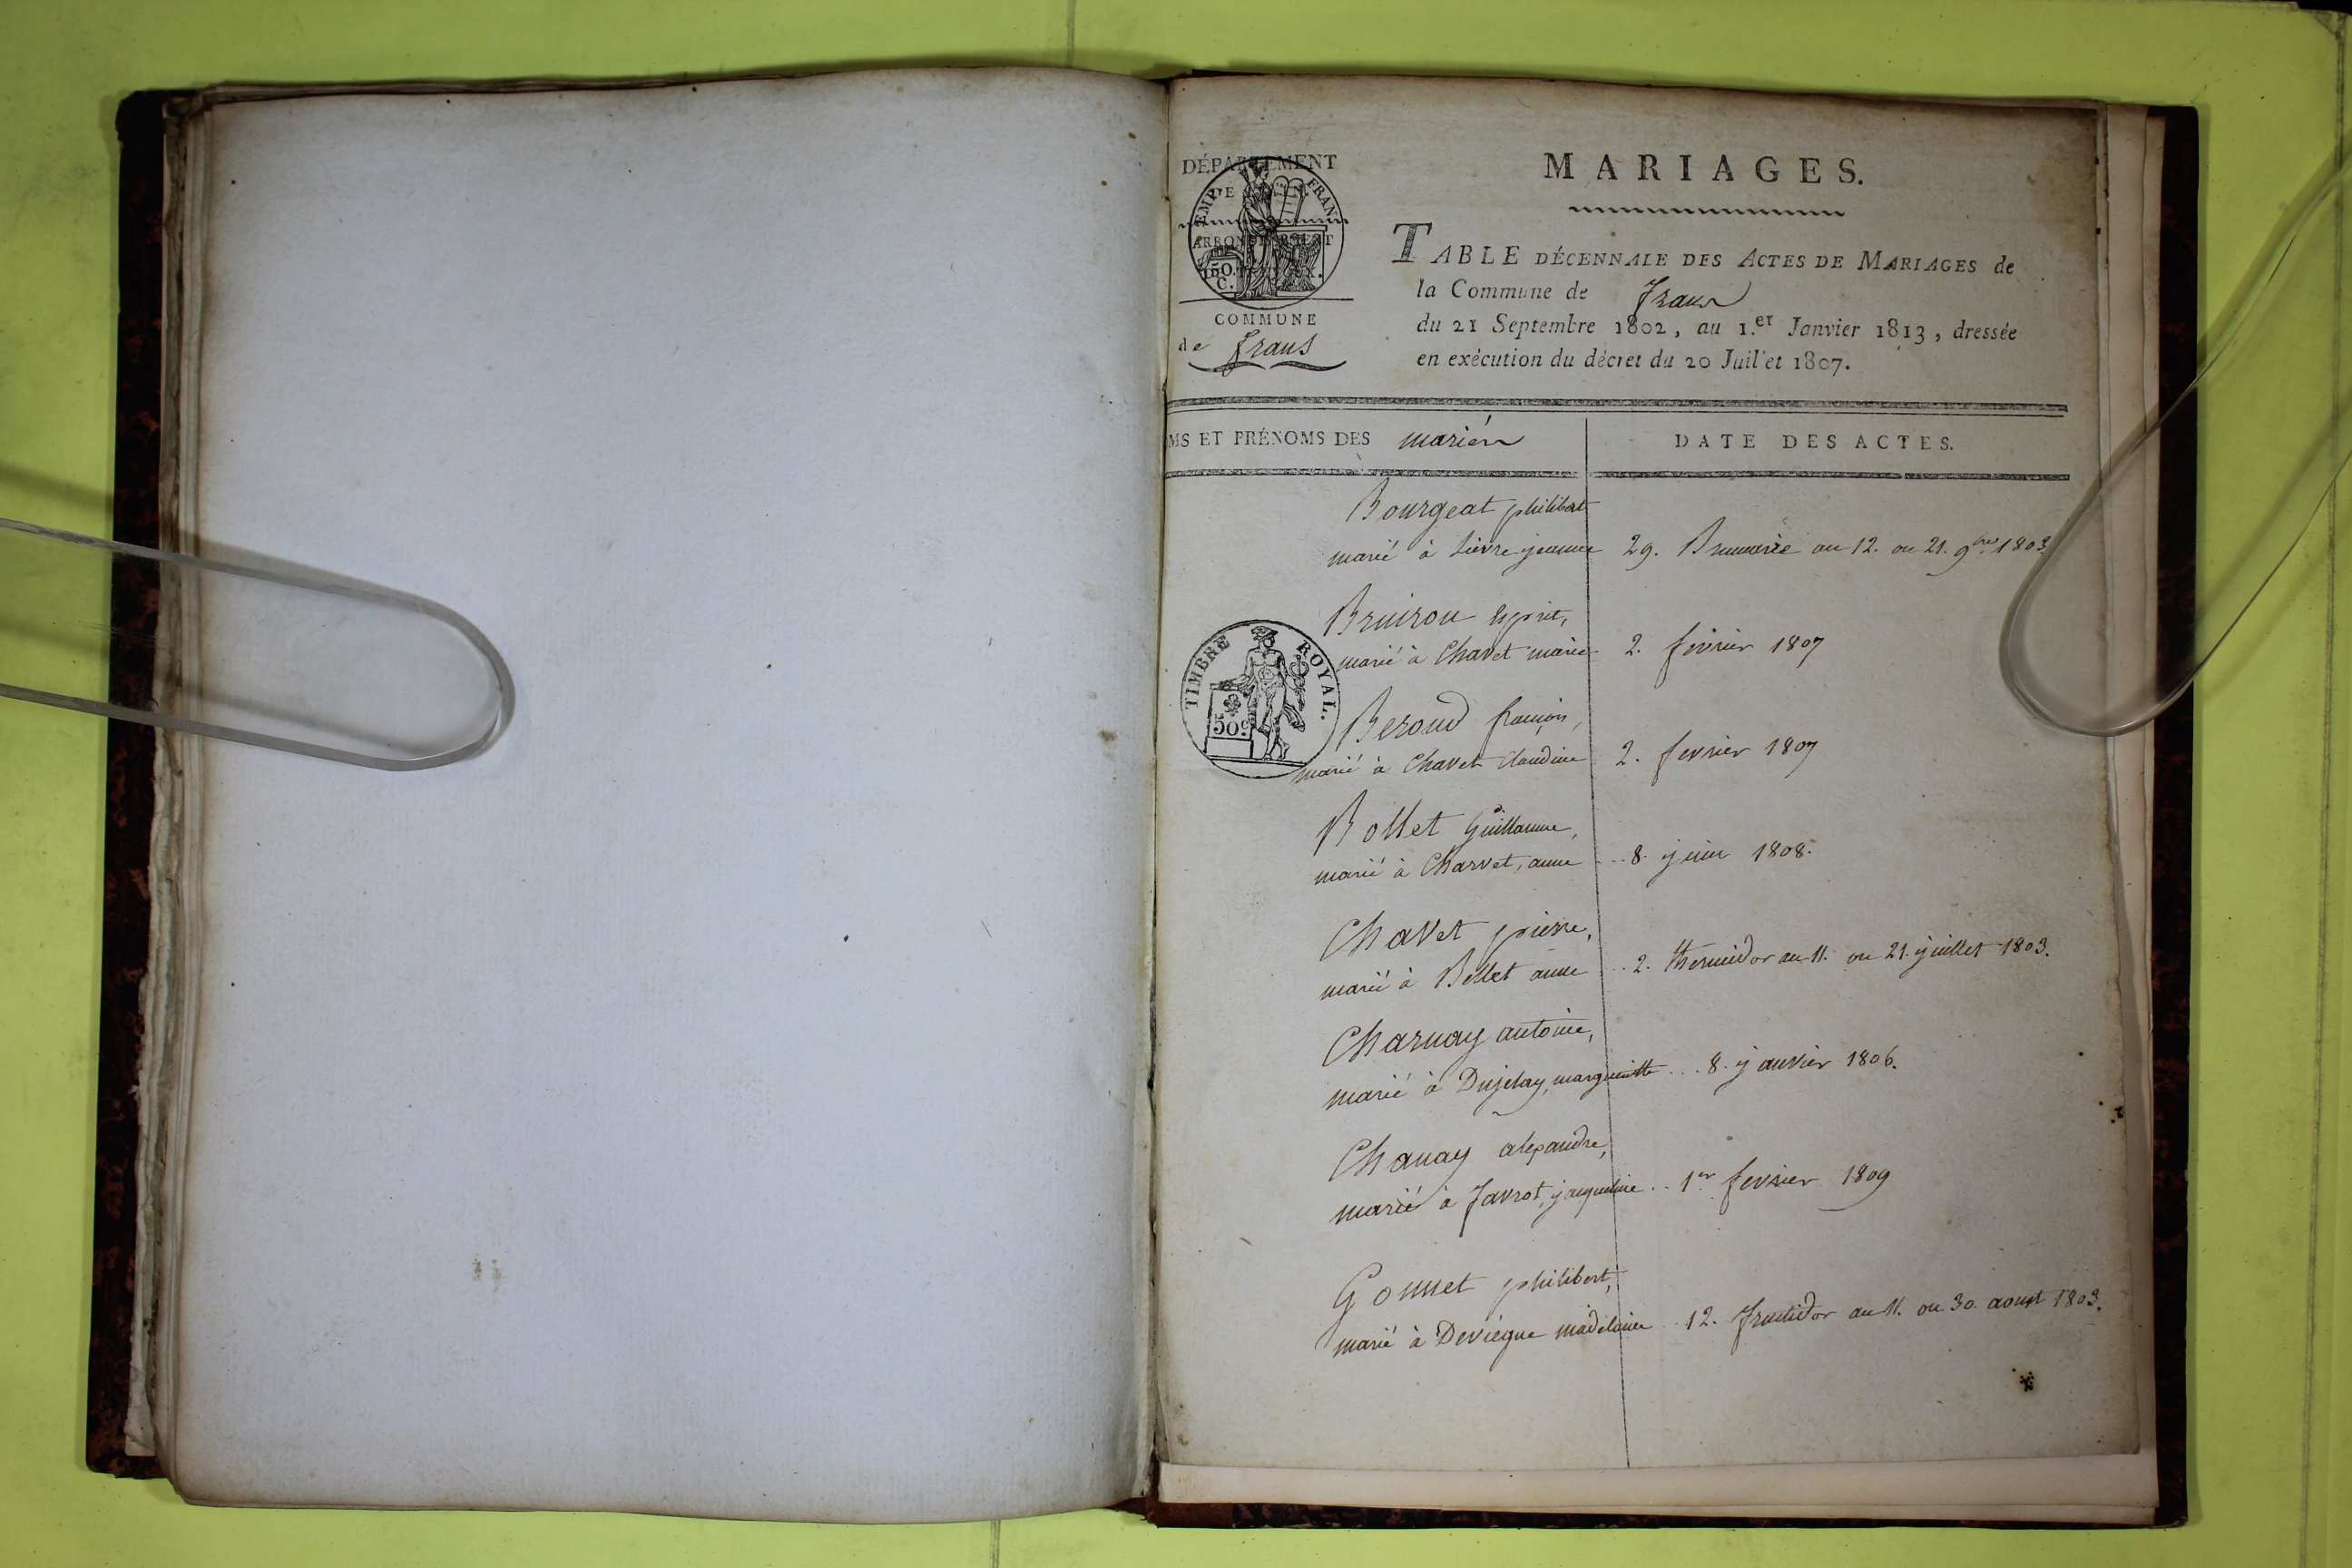 MARIAGES.
DÉPARTEMENT
EMP. FRAN.
ARRONDISSEMENT
50.
C.
COMMUNE
de frans
TABLE DÉCENNALE DES ACTES DE MARIAGES de
la Commune de frans
du 21 Septembre 1802, au 1.er Janvier 1813, dressée
en exécution du décret du 20 Juillet 1807.
MS ET PRÉNOMS DES mariés
DATE DES ACTES.
Bourgeat philibert
marié à Lièvre jeanne 29. Brumaire an 12. ou 21. 9bre 1803.
Bruirou esprit,
marié à Chavet marie 2. février 1807
TIMBRE ROYAL.
50c
Beroud françois,
marié à Chavet Claudine 2. fevrier 1807
Bollet Guillaume,
marié à Charvet, anne 8. juin 1808.
Chavet pierre,
marié à Bellet anne 2. thermidor an 11. ou 21. juillet 1803.
Charnay antoine,
marié à Dujelay, margueritte 8. janvier 1806.
Chanay alexandre,
marié à favrot, jacqueline 1er fevrier 1809
Gonnet philibert,
marié à Deviégue madelaine 12. fructidor an 11. ou 30. aoust 1803.